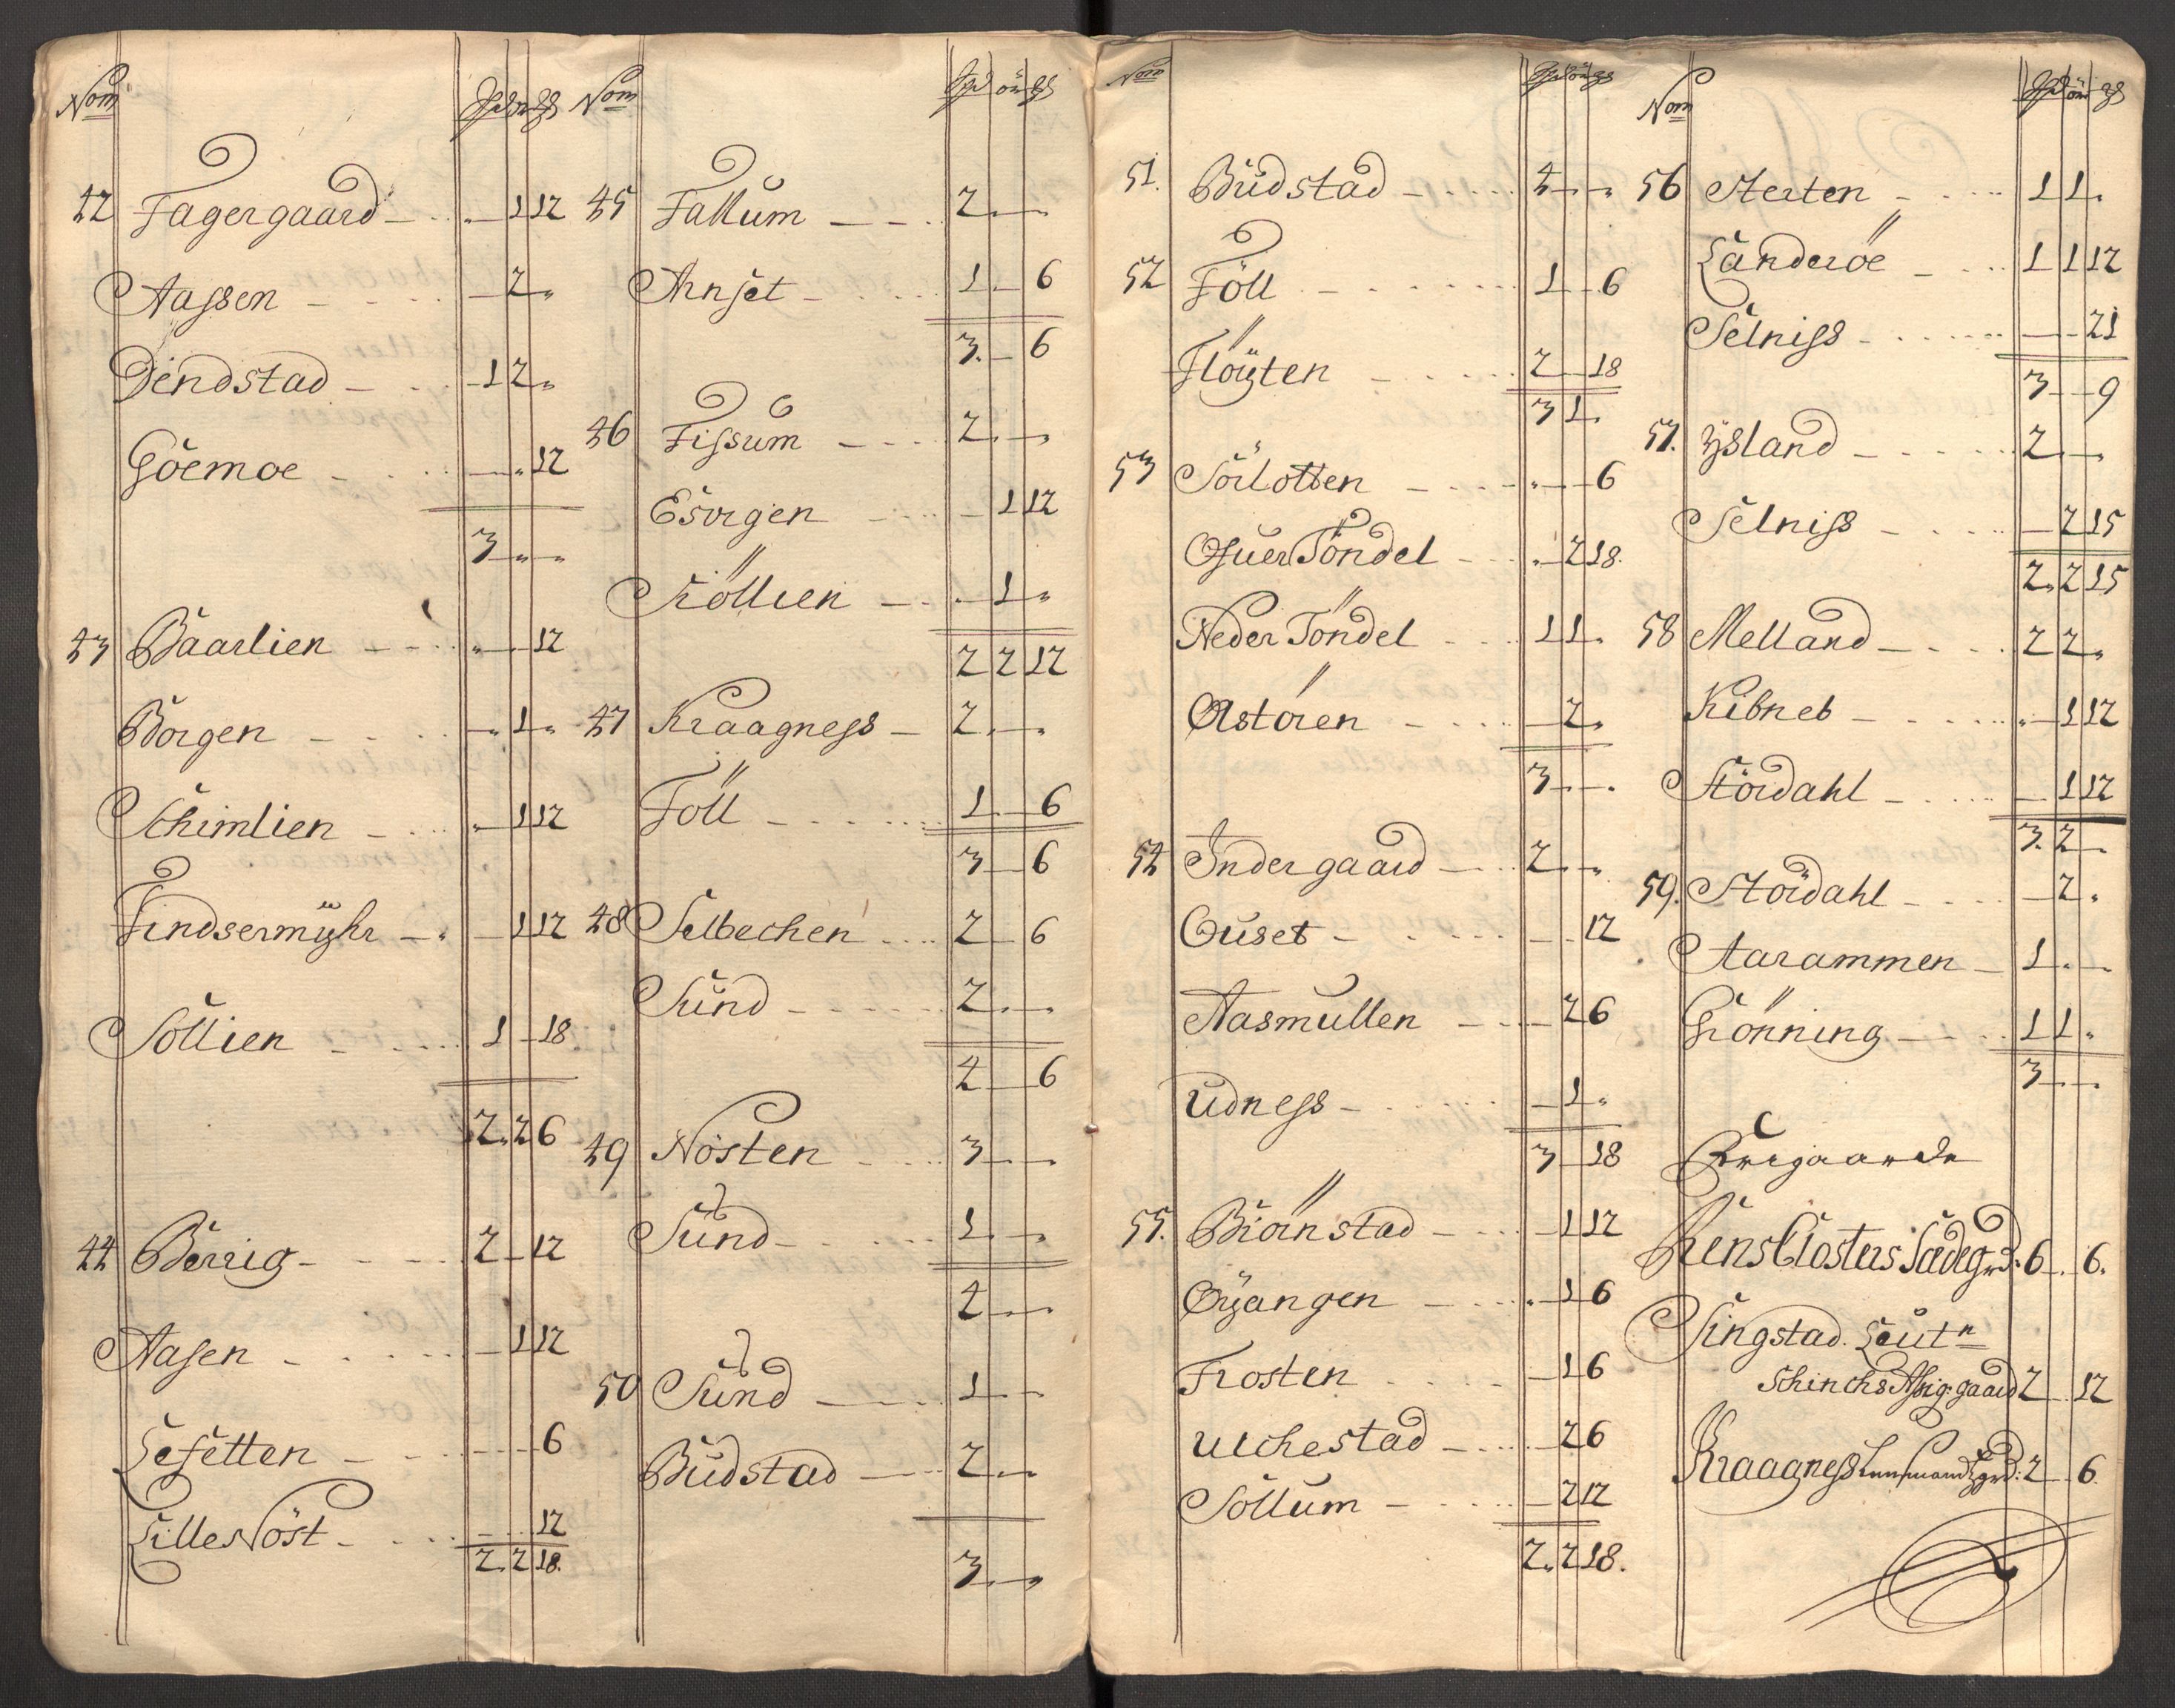 Nom
42 Fagergaard - 1 12
Aassen - 2 -
Dendstad - 1 2 -
Göemoe - 12
3 - -
43 Baarlien - 12
Borgen - 1 -
Schimlien - 1 12
Findsermyhr - 1 12
Sollien - 1 - 18
2 2 6
44 Berrig - 2 - 12
Aasen - 1 12
Sefetten - 6
Lille Nöst - 12
2 2 18.
Nom
45 Fallum - 2 -
Arnset - 1 - 6
3 - 6
46 Fissum - 2 - -
Esorgen - 1 12
Kiöllien - 1 -
2 2 12
47 Kraagness - 2 - -
Föll - 1 - 6
3 - 6
48 Selbechen - 2 - 6
Sund - 2 - -
4 - 6
49 Nösten - 3 - -
Sund - 1 - -
4 - -
50 Sund - 1 - -
Budstad - 2 - -
3 - -
Nom
51. Budstad - 4 - -
52 Föll - 1 - 6
Flöyten - 2 - 18
3 1 -
53 Sörlotten - 6
Ofuer Töndel - 2 18.
Neder Töndel - 1 1 -
Astören - 2 -
3 - -
54 Indergaard - 2 - -
Ouset - 12
Aasmullen - 2 6
Udness - 1 -
3 - 18
55. Biörnstad - 1 12
Öyangen - 1 6
Frosten - 1 6
Uchestad - 2 6
Sollum - 2 12
2 2 18.
Nom
56 Sterten - 1 1 -
Landeröe - 1 1 12
Selniss - 21
3 - 9
57. Ysland - 2 - -
Selniss - 2 15
2. 2 15
58 Melland - 2 2 -
Kibneb - 1 12
Stördahl - 1 12
3. 2 -
59. Stördahl - 2 -
Aarammen - 1 - -
Grönning - 1 1 -
3 - -
Frigaarde
Rens Closters Sædegrd: 6 - 6.
Singstad. Leutn
Schinchs Assig: gaard 2 - 12
Kraagness Lensmands grd: 2 - 6